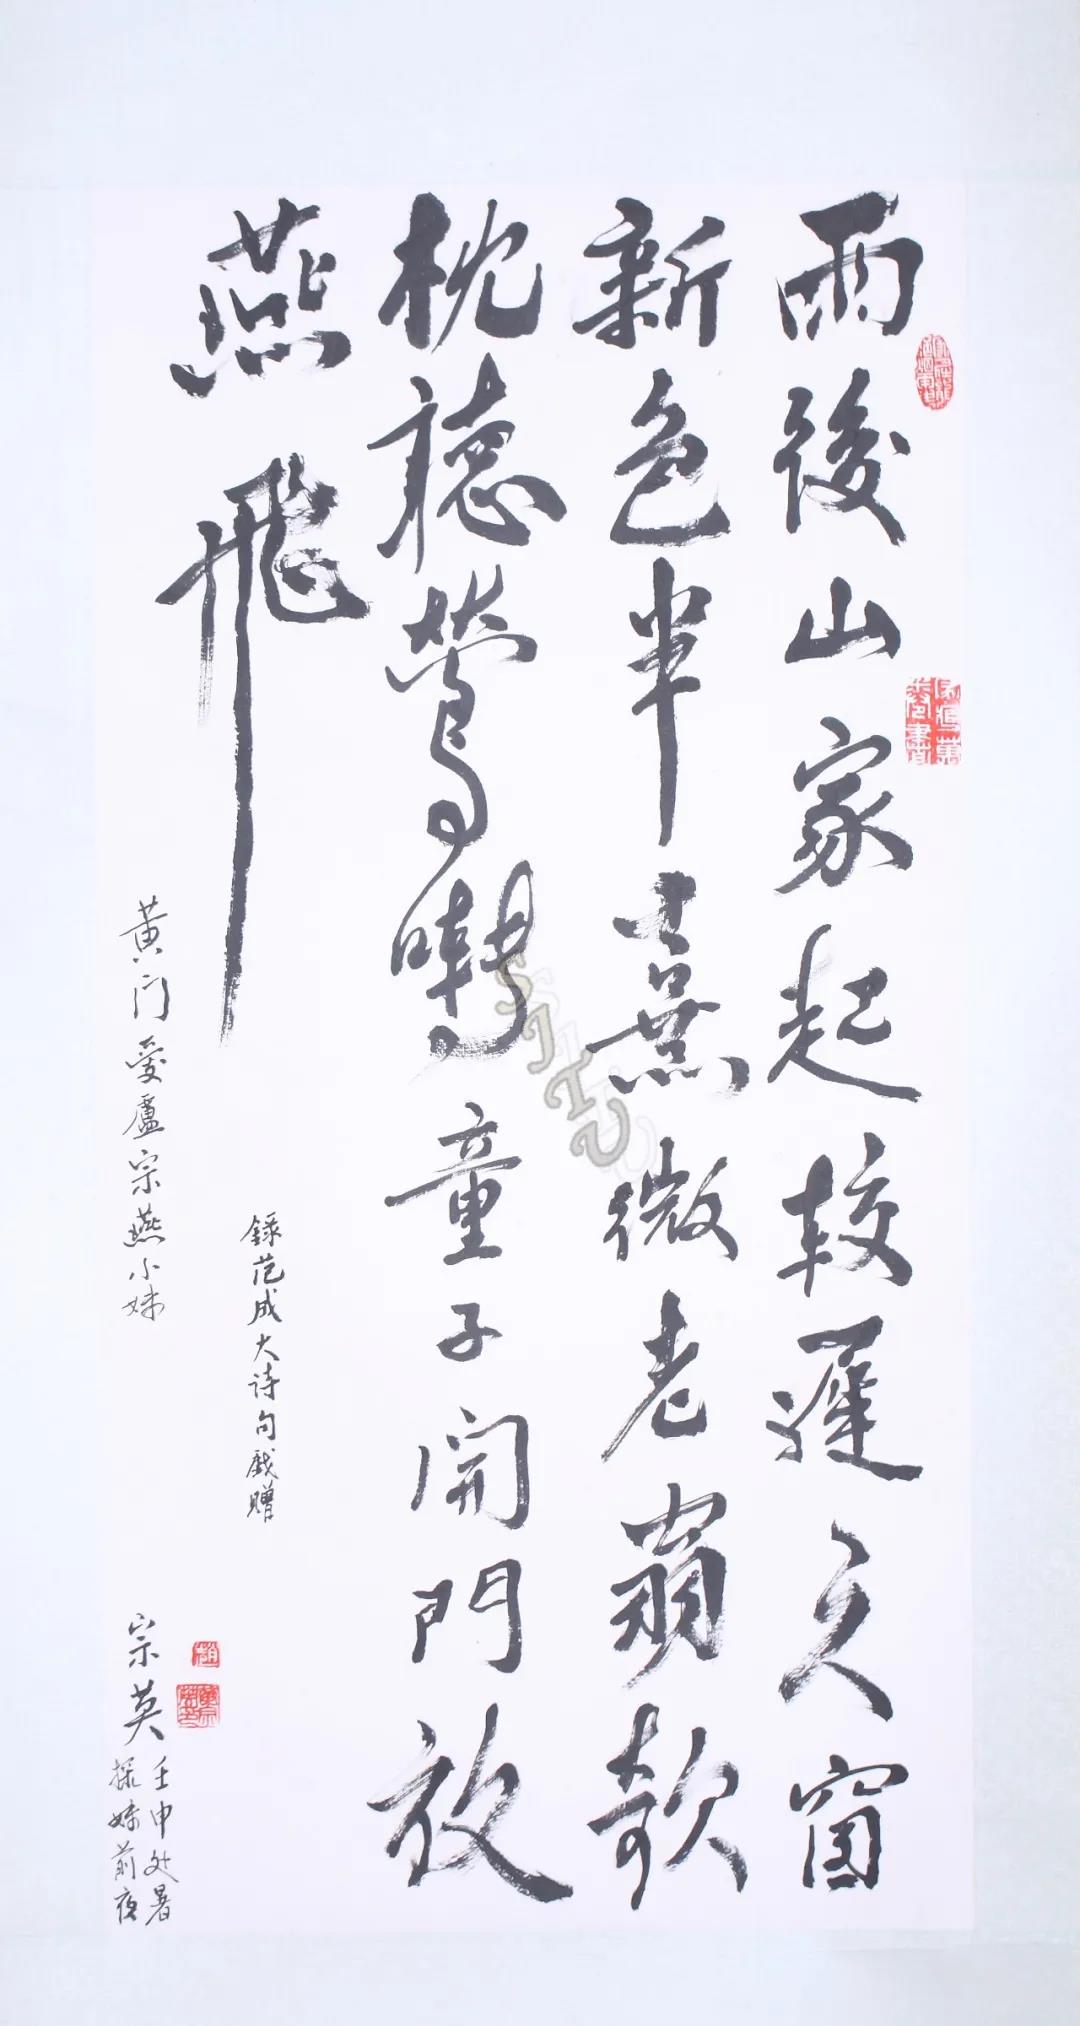 雨後山家起較遲天窗
新色半熹微老翁欹
枕聽鶯囀童子開門放
燕飛
錄范成大诗句戏赠
黄门爱盧宗燕小妹
宗英
壬申处暑
探妹前夜